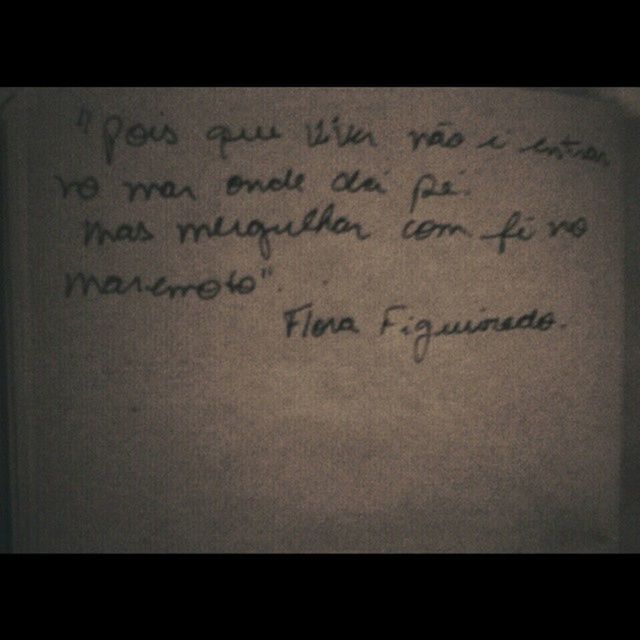 "Pois que viver não é entrar
no mar onde dá pé.
mas mergulhar com fé no
maremoto".
Flora Figueiredo.